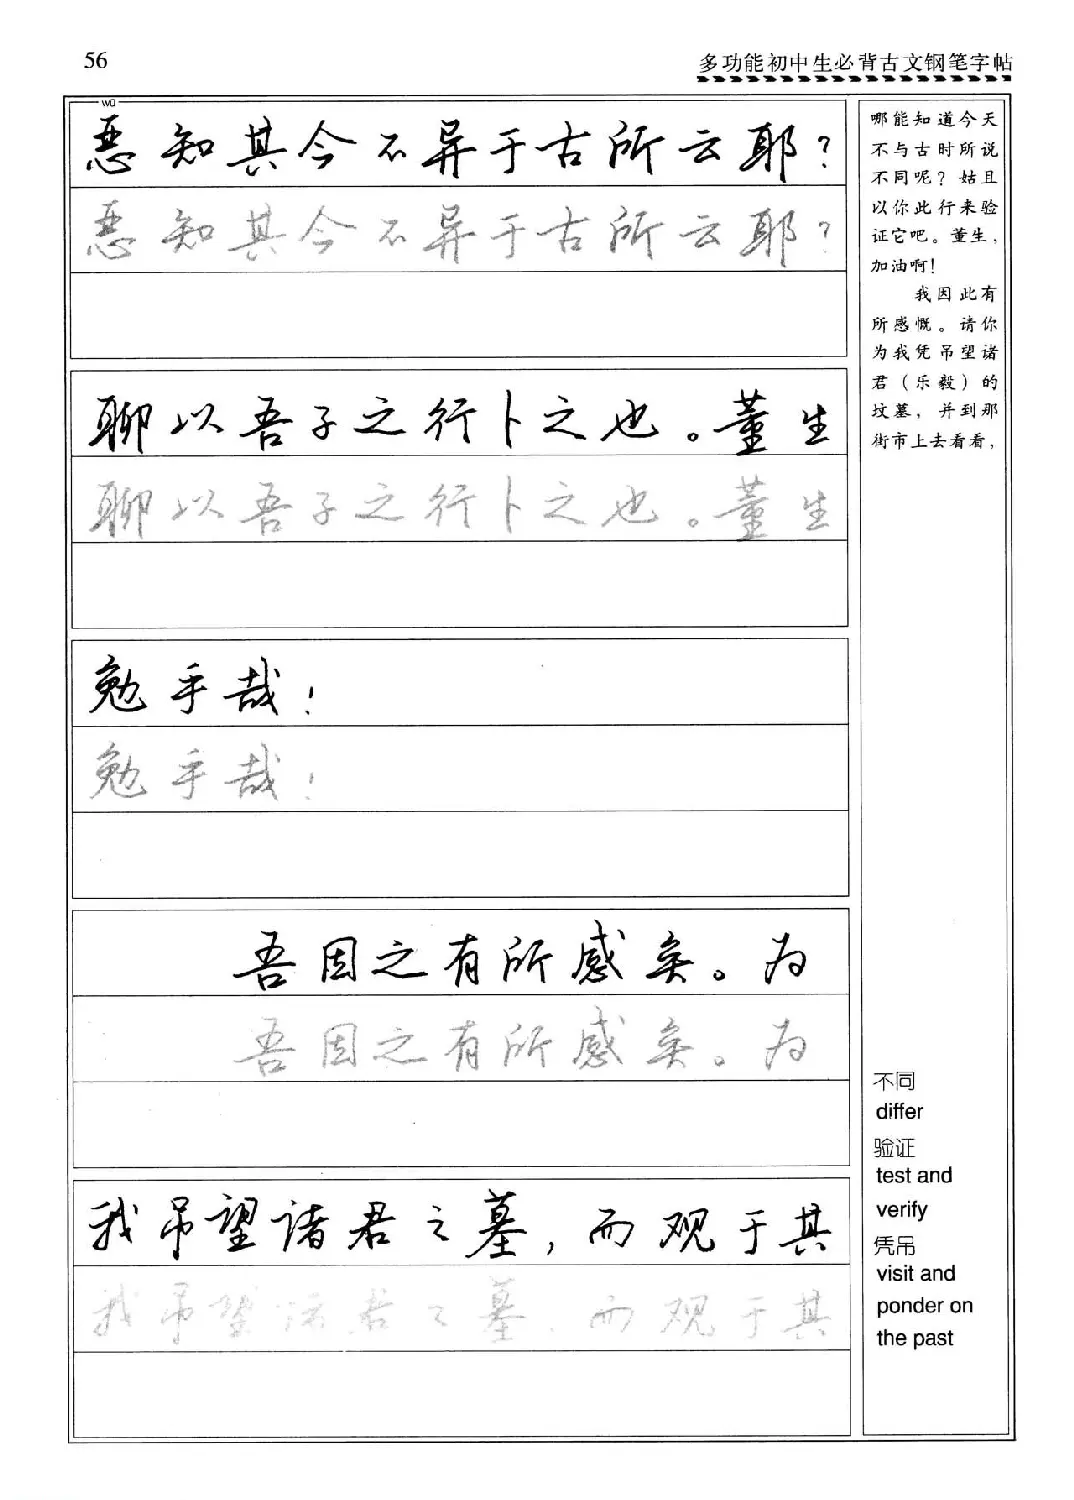 56
多功能初中生必背古文钢笔字帖
wū
恶知其今不异于古所云耶？
恶知其今不异于古所云耶？
聊以吾子之行卜之也。董生
聊以吾子之行卜之也。董生
勉乎哉！
勉乎哉！
吾因之有所感矣。为
吾因之有所感矣。为
我吊望诸君之墓，而观于其
我吊望诸君之墓，而观于其
哪能知道今天
不与古时所说
不同呢？姑且
以你此行来验
证它吧。董生，
加油啊！
我因此有
所感慨。请你
为我凭吊望诸
君（乐毅）的
坟墓，并到那
街市上去看看，
不同
differ
验证
test and
verify
凭吊
visit and
ponder on
the past